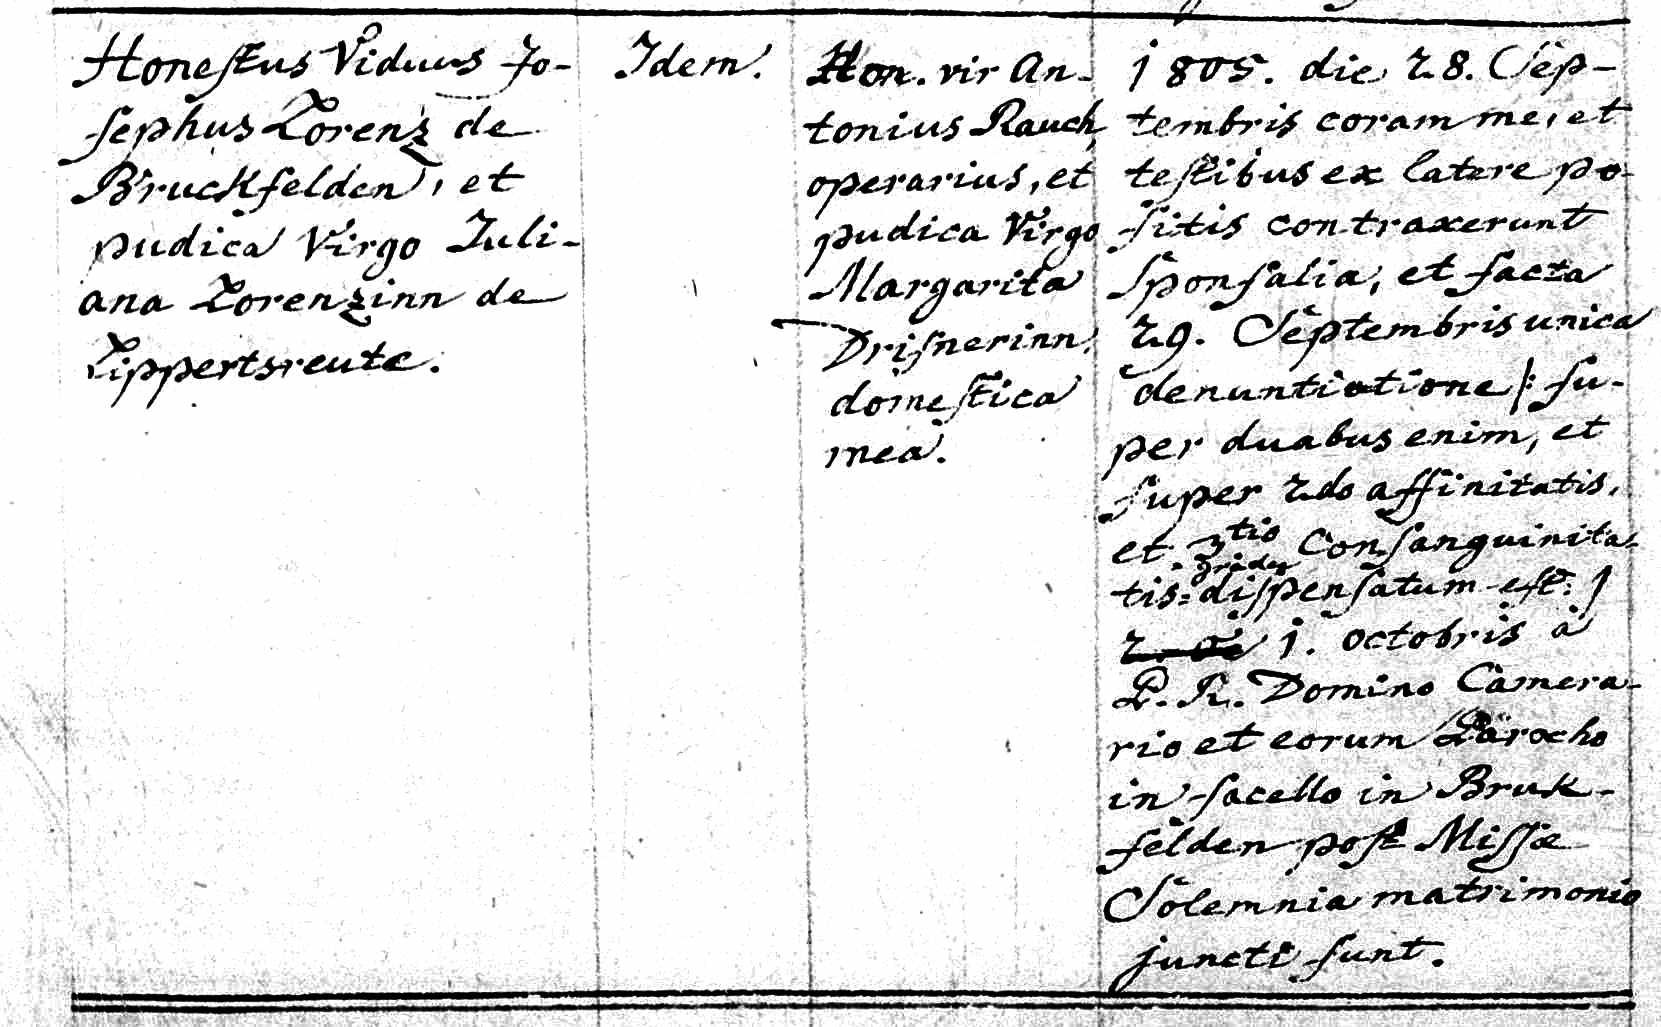 Honestus Viduus Jo-
sephus Lorenz de
Bruckfelden, et
pudica Virgo Juli-
ana Lorenzinn de
Lippertsreute.
Idem.
Hon. vir An-
tonius Rauch,
operarius, et
pudica Virgo
Margarita
Drisnerinn.
domestica
mea.
1805. die 28. Sep-
tembris coram me, et
testibus ex latere po-
sitis contraxerunt
Sponsalia, et facta
29. Septembris unica
denuntiatione |: su-
per duabus enim, et
super 2do affinitatis,
et 3tio Consanguinita-
gradu
tis = dispensatum est: |
1. octobris à
P. R. Domino Camera-
rio et eorum Parocho
in sacello in Bruk-
felden post Missæ
Solemnia matrimonio
juncti sunt.